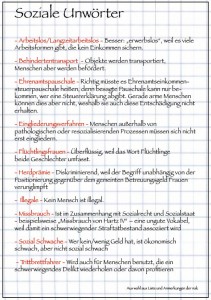 Soziale Unwörter
- Arbeitslos/Langzeitarbeitslos - Besser: „erwerbslos", weil es viele
Arbeitsformen gibt, die kein Einkommen sichern.
- Behindertentransport - Objekte werden transportiert,
Menschen aber werden befördert.
- Ehrenamtspauschale - Richtig müsste es Ehrenamtseinkommen-
steuerpauschale heißen, denn bewegte Pauschale kann nur be-
kommen, wer eine Steuererklärung abgibt. Gerade arme Menschen
können dies aber nicht, weshalb sie auch diese Entschädigung nicht
erhalten.
- Eingliederungsverfahren - Menschen außerhalb von
pathologischen oder resozialisierenden Prozessen müssen sich nicht
erst eingliedern.
- Flüchtlingsfrauen - Überflüssig, weil das Wort Flüchtlinge
beide Geschlechter umfasst.
- Herdprämie - Diskriminierend, weil der Begriff unabhängig von der
Positionierung gegenüber dem gemeinten Betreuungsgeld Frauen
verunglimpft
- Illegale - Kein Mensch ist illegal.
- Missbrauch - Ist im Zusammenhang mit Sozialrecht und Sozialstaat
beispielsweise „Missbrauch von Hartz IV" - eine ungute Vokabel,
weil damit ein schwerwiegender Straftatbestand verknüpft wird.
- Sozial Schwache - Wer kein/wenig Geld hat, ist ökonomisch
schwach, aber nicht sozial schwach
- Trittbrettfahrer - Wird auch für Menschen benutzt, die ein
schwerwiegendes Delikt wiederholen oder davon profitieren